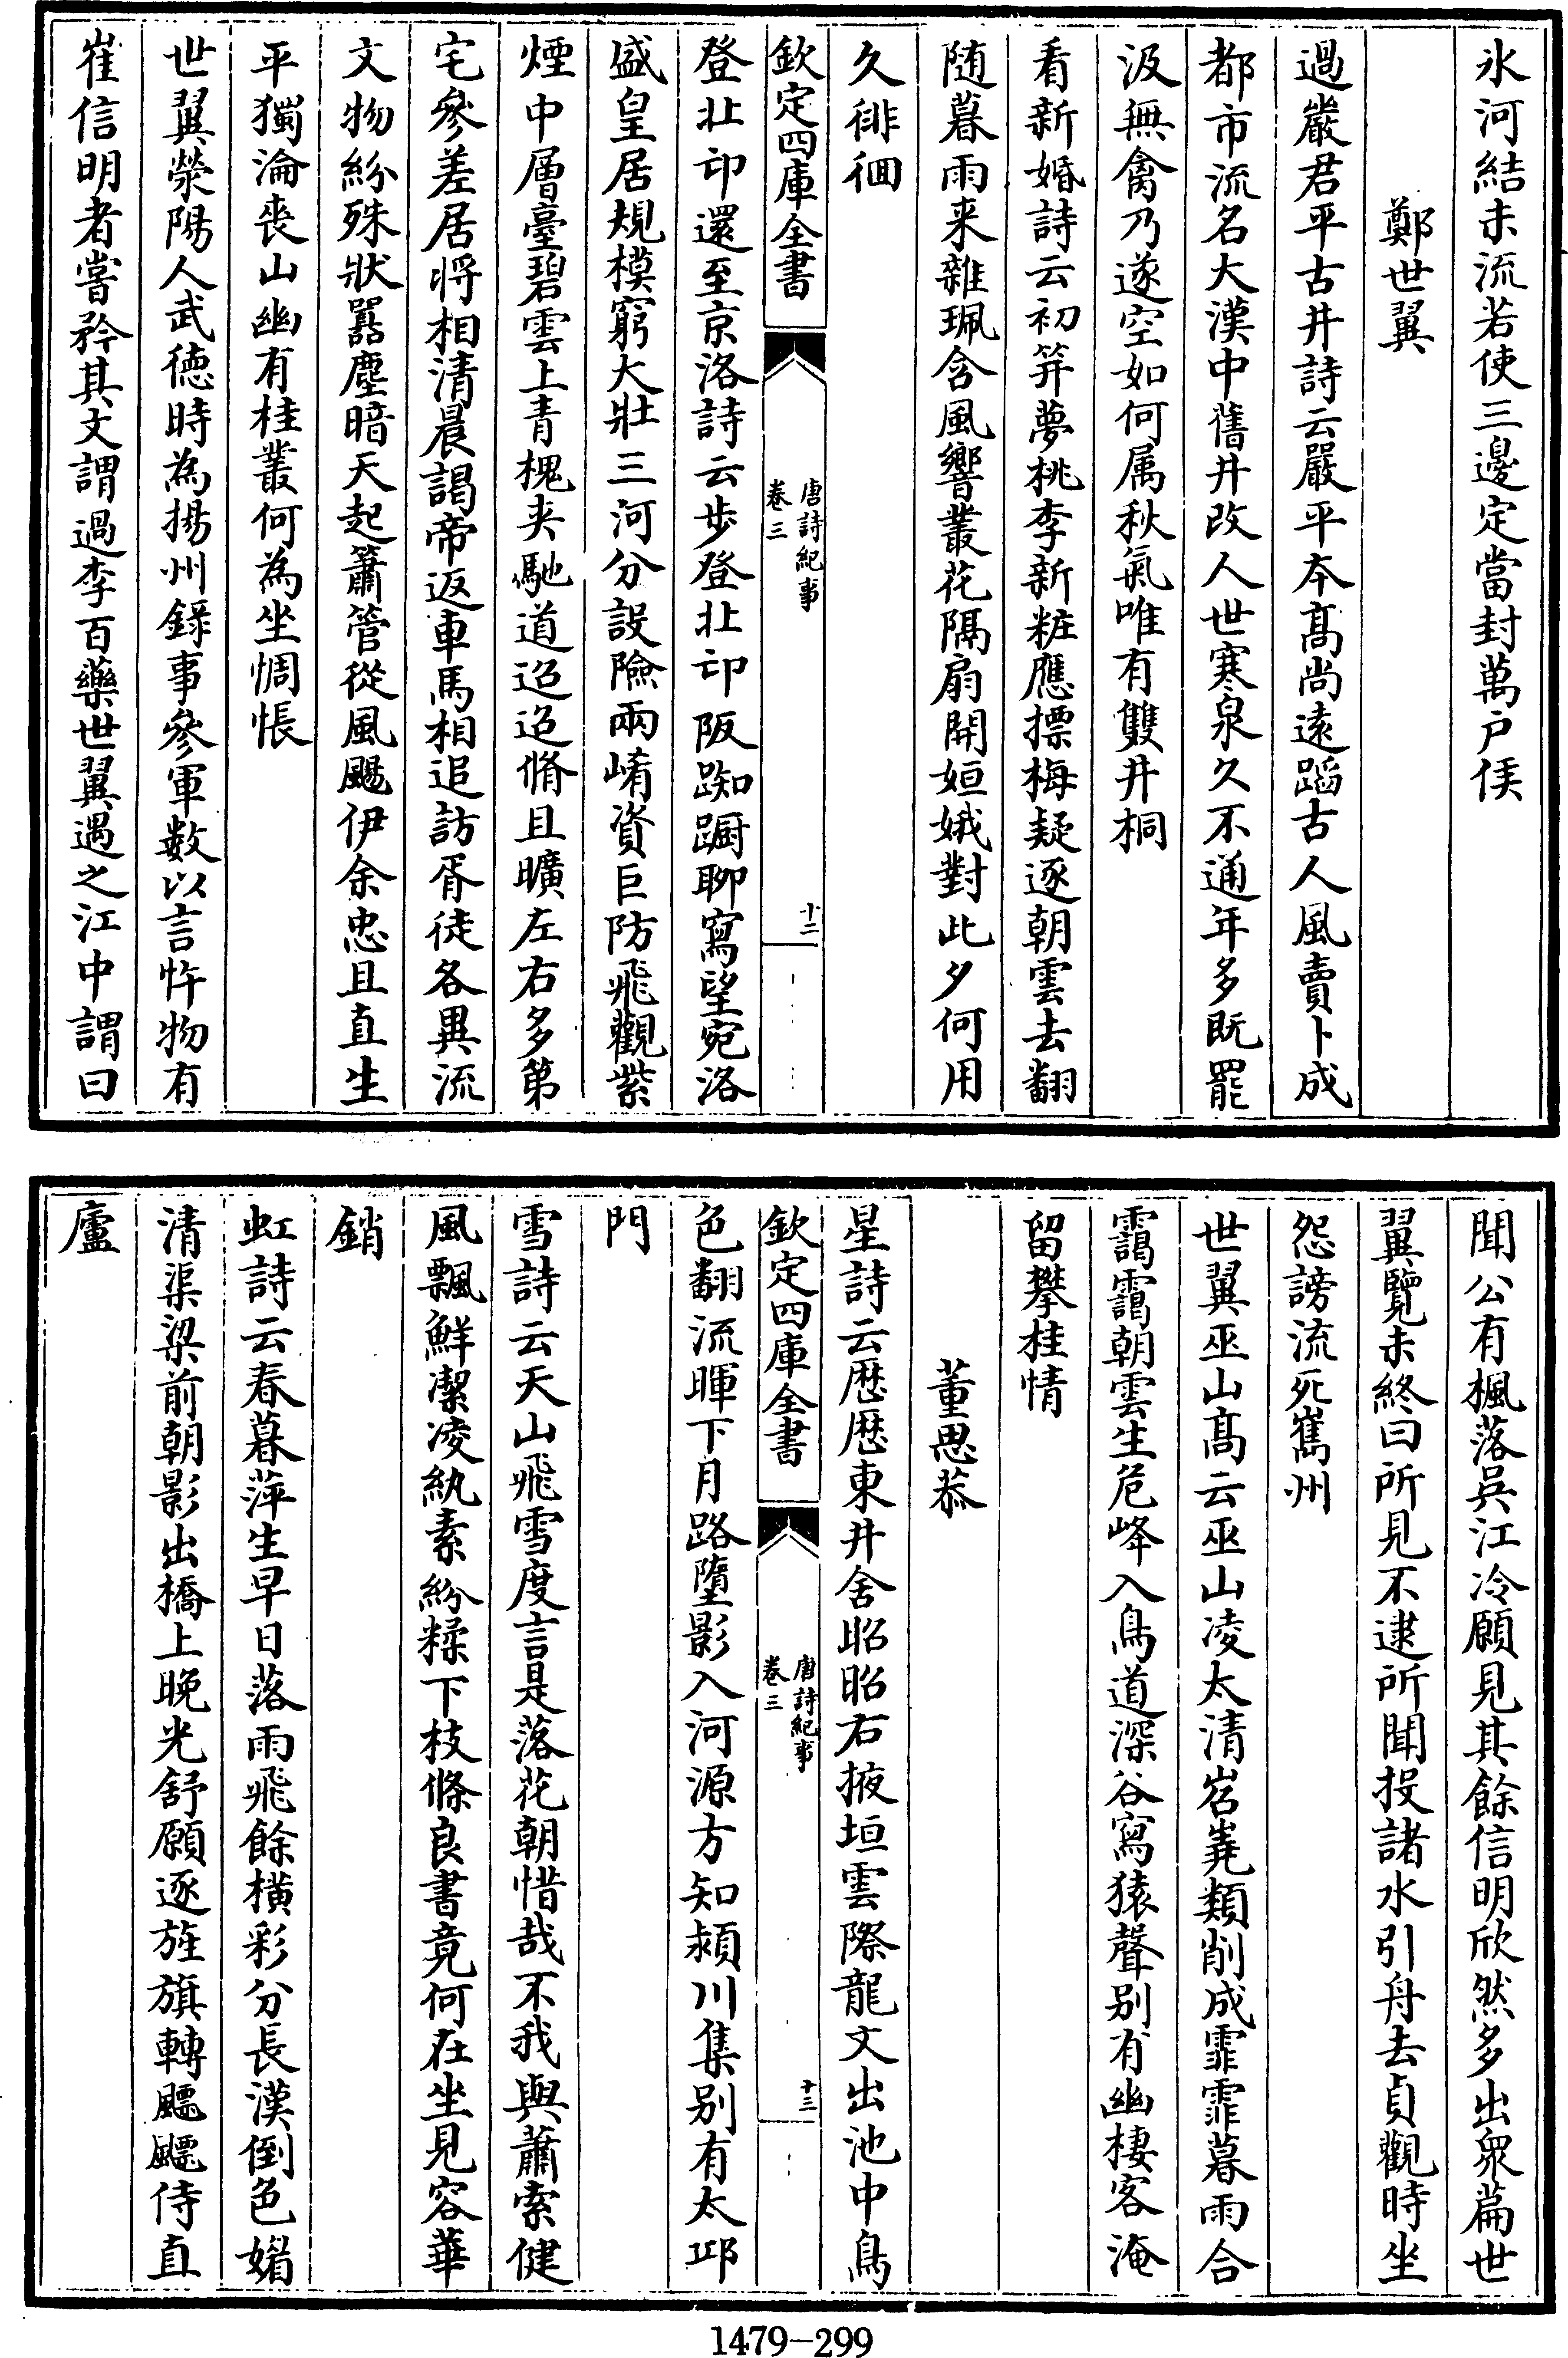 氷河結未流若使三邊定當封萬户侯
鄭世翼
過嚴君平古井詩云嚴平本髙尚逺蹈古人風賣卜成
都市流名大漢中舊井改人世寒泉久不通年多既罷
汲無禽乃遂空如何属秋氣唯有雙井桐
看新婚詩云初笄夢桃李新粧應摽梅疑逐朝雲去翻
随暮雨来雜珮含風響叢花隔扇開姮娥對此夕何用
久徘徊
欽定四庫全書
唐詩紀事
卷三
十二
登北邙還至京洛詩云步登北邙阪踟蹰聊寫望宛洛
盛皇居規模窮大壯三河分設險兩崤資巨防飛觀紫
煙中層臺碧雲上青槐夾馳道迢迢脩且曠左右多第
宅參差居將相清晨謁帝返車馬相追訪胥徒各異流
文物紛殊狀囂塵暗天起簫管從風颺伊余忠且直生
平獨淪喪山幽有桂叢何為坐惆悵
世翼滎陽人武徳時為揚州錄事參軍数以言忤物有
崔信明者嘗矜其文謂過李百藥世翼遇之江中謂曰
聞公有楓落吳江冷願見其餘信明欣然多出衆篇世
翼覽未終曰所見不逮所聞投諸水引舟去貞觀時坐
怨謗流死巂州
世翼巫山髙云巫山凌太清岧嶤類削成霏霏暮雨合
靄靄朝雲生危峰入鳥道深谷寫猿聲别有幽棲客淹
留攀桂情
董思恭
星詩云歴歴東井舍昭昭右掖垣雲際龍文出池中鳥
欽定四庫全書
唐詩紀事
卷三
十三
色翻流暉下月路墮影入河源方知潁川集别有太邱
門
雪詩云天山飛雪度言是落花朝惜哉不我與蕭索健
風飄鮮潔凌紈素紛糅下枝條良書竟何在坐見容華
銷
虹詩云春暮萍生早日落雨飛餘横彩分長漢倒色媚
清渠梁前朝影出橋上晚光舒願逐旌旗轉飃飃侍直
廬
1479-299